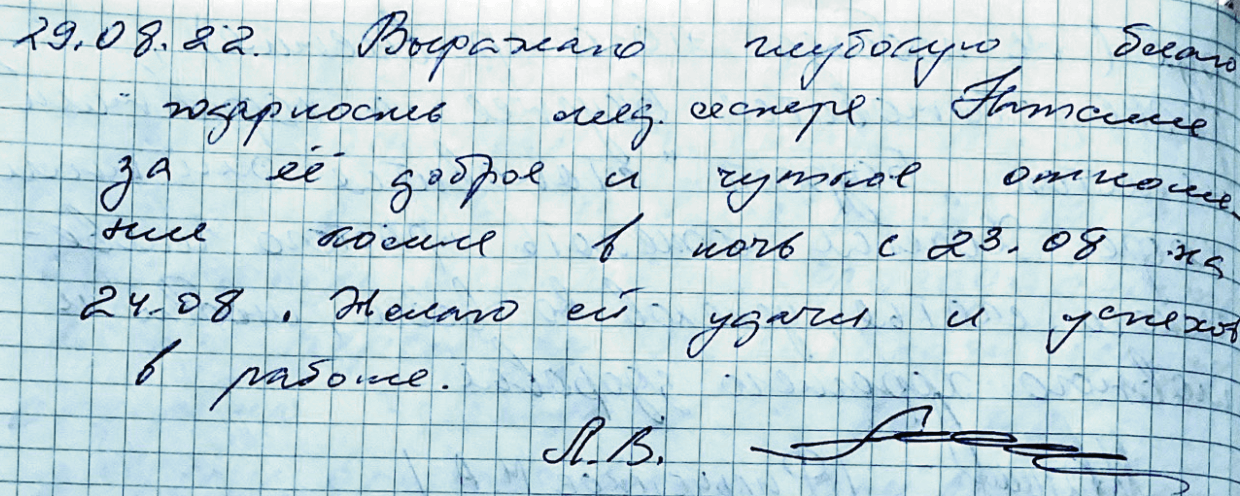 29.08.22. Выражаю глубокую благо
дарность мед. сестре Наташе
за её доброе и чуткое отноше-
ние ко мне в ночь с 23.08 на
24.08. Желаю ей удачи и успехов
в работе.
Л.В.